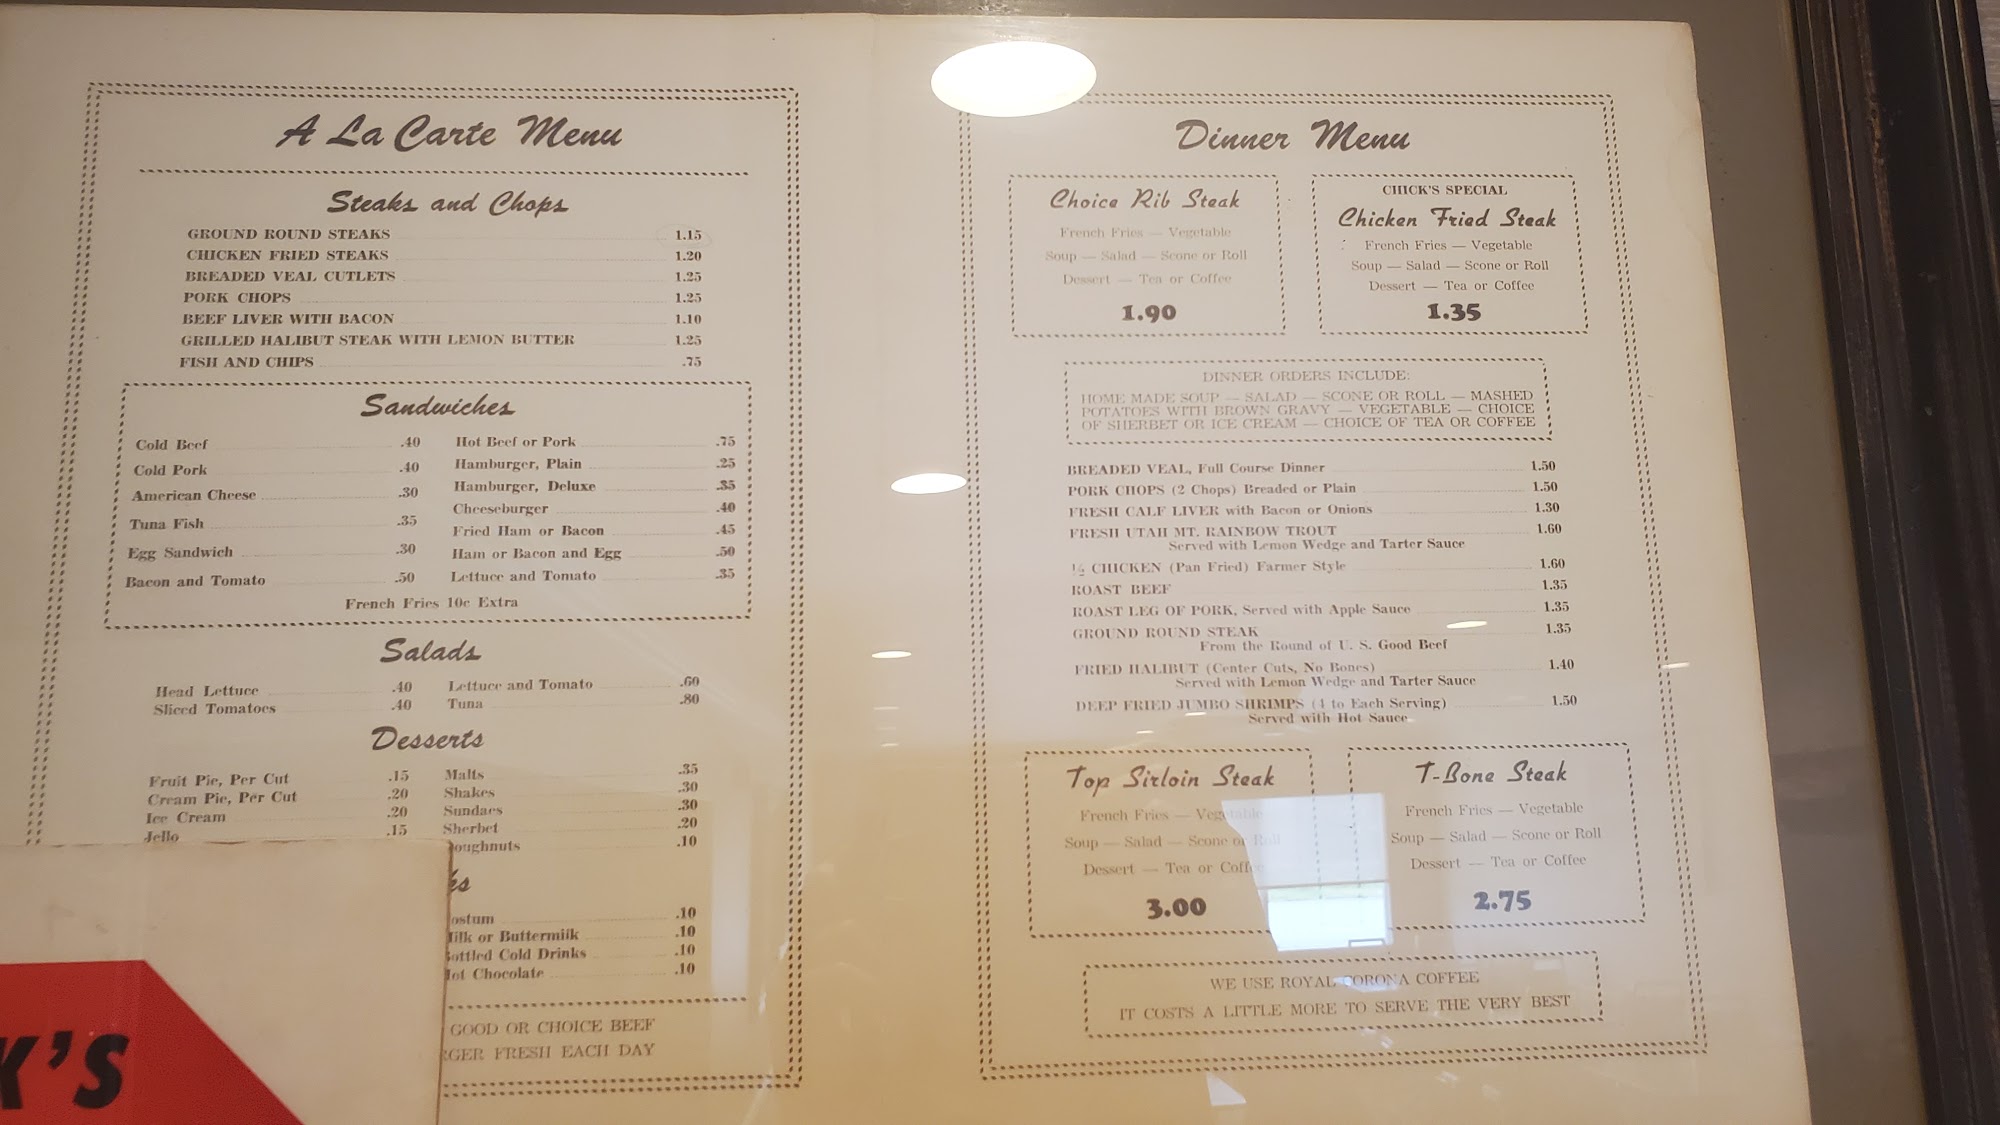 A La Carte Menu
Steaks and Chops
GROUND ROUND STEAKS 1.15
CHICKEN FRIED STEAKS 1.20
BREADED VEAL CUTLETS 1.25
PORK CHOPS 1.25
BEEF LIVER WITH BACON 1.10
GRILLED HALIBUT STEAK WITH LEMON BUTTER 1.25
FISH AND CHIPS .75
Sandwiches
Cold Beef .40
Cold Pork .40
American Cheese .30
Tuna Fish .35
Egg Sandwich .30
Bacon and Tomato .50
Hot Beef or Pork .75
Hamburger, Plain .25
Hamburger, Deluxe .35
Cheeseburger .40
Fried Ham or Bacon .45
Ham or Bacon and Egg .50
Lettuce and Tomato .35
French Fries 10c Extra
Salads
Head Lettuce .40
Sliced Tomatoes .40
Lettuce and Tomato .60
Tuna .80
Desserts
Fruit Pie, Per Cut .15
Cream Pie, Per Cut .20
Ice Cream .20
Jello .15
Malts .35
Shakes .30
Sundaes .30
Sherbet .20
oughnuts .10
ks
ostum .10
ilk or Buttermilk .10
ottled Cold Drinks .10
ot Chocolate .10
GOOD OR CHOICE BEEF
RGER FRESH EACH DAY
K'S
Dinner Menu
Choice Rib Steak
French Fries — Vegetable
Soup — Salad — Scone or Roll
Dessert — Tea or Coffee
1.90
CHICK'S SPECIAL
Chicken Fried Steak
French Fries — Vegetable
Soup — Salad — Scone or Roll
Dessert — Tea or Coffee
1.35
DINNER ORDERS INCLUDE:
HOME MADE SOUP — SALAD — SCONE OR ROLL — MASHED
POTATOES WITH BROWN GRAVY — VEGETABLE — CHOICE
OF SHERBET OR ICE CREAM — CHOICE OF TEA OR COFFEE
BREADED VEAL, Full Course Dinner 1.50
PORK CHOPS (2 Chops) Breaded or Plain 1.50
FRESH CALF LIVER with Bacon or Onions 1.30
FRESH UTAH MT. RAINBOW TROUT 1.60
Served with Lemon Wedge and Tarter Sauce
½ CHICKEN (Pan Fried) Farmer Style 1.60
ROAST BEEF 1.35
ROAST LEG OF PORK, Served with Apple Sauce 1.35
GROUND ROUND STEAK 1.35
From the Round of U. S. Good Beef
FRIED HALIBUT (Center Cuts, No Bones) 1.40
Served with Lemon Wedge and Tarter Sauce
DEEP FRIED JUMBO SHRIMPS (4 to Each Serving) 1.50
Served with Hot Sauce
Top Sirloin Steak
French Fries — Vegetable
Soup — Salad — Scone or Roll
Dessert — Tea or Coffee
3.00
T-Bone Steak
French Fries — Vegetable
Soup — Salad — Scone or Roll
Dessert — Tea or Coffee
2.75
WE USE ROYAL CORONA COFFEE
IT COSTS A LITTLE MORE TO SERVE THE VERY BEST